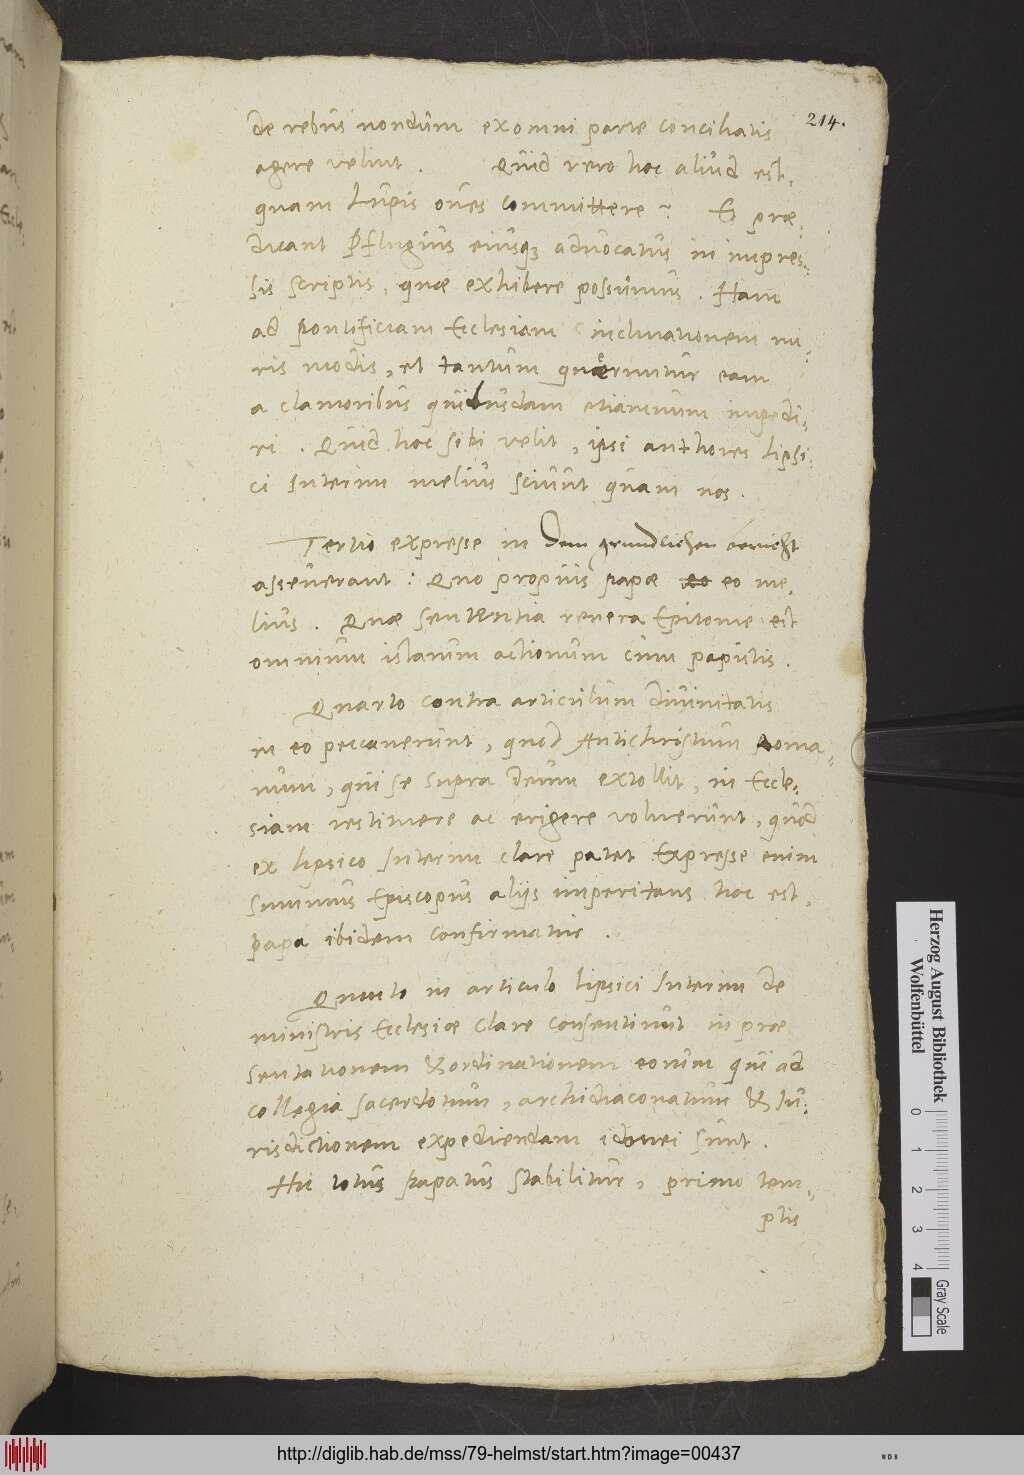 214.
de rebus nondum ex omni parte conciliatis
agere velint. Quid vero hoc aliud est,
quam lupis oues committere? Et præ-
dicant Pflugius eiusq3 aduocatus in impres-
sis scriptis, quæ exhibere possumus. Nam
ad pontificiam Ecclesiam inclinationem mi-
ris modis, et tantum quæruntur eam
a clamoribus quibusdam etiamnum impedi-
ri. Quid hoc sibi velit, ipsi authores Lipsi-
ci Interim melius sciunt quam nos.
Tertio expresse in Dem grundlichen bericht
asseuerant: Quo propius papæ eo eo me-
lius. Quæ sententia reuera Epitome est
omnium istarum actionum cum papistis.
Quarto contra articulum diuinitatis
in eo peccauerunt, quod Antichristum Roma-
num, qui se supra deum extollit, in Eccle-
siam restituere ac erigere voluerunt, quod
ex lipsico Interim clare patet Expresse enim
summus Episcopus alijs imperitans hoc est,
papa ibidem confirmatur.
Quinto in articulo lipsici Interim de
ministris Ecclesiæ clare consentiunt in præ
sentationem & ordinationem eorum qui ad
collegia sacerdotum, archidiaconatum & Iu-
risdictionem expediendam idonei sunt.
Hic totus papatus stabilitur, primo tem-
ptis
Herzog August Bibliothek
Wolfenbüttel
0 1 2 3 4
Gray Scale
http://diglib.hab.de/mss/79-helmst/start.htm?image=00437